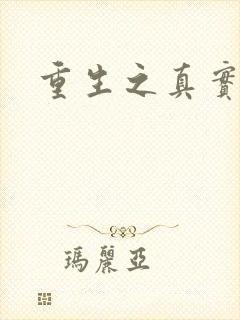 重生之真實
瑪麗亞